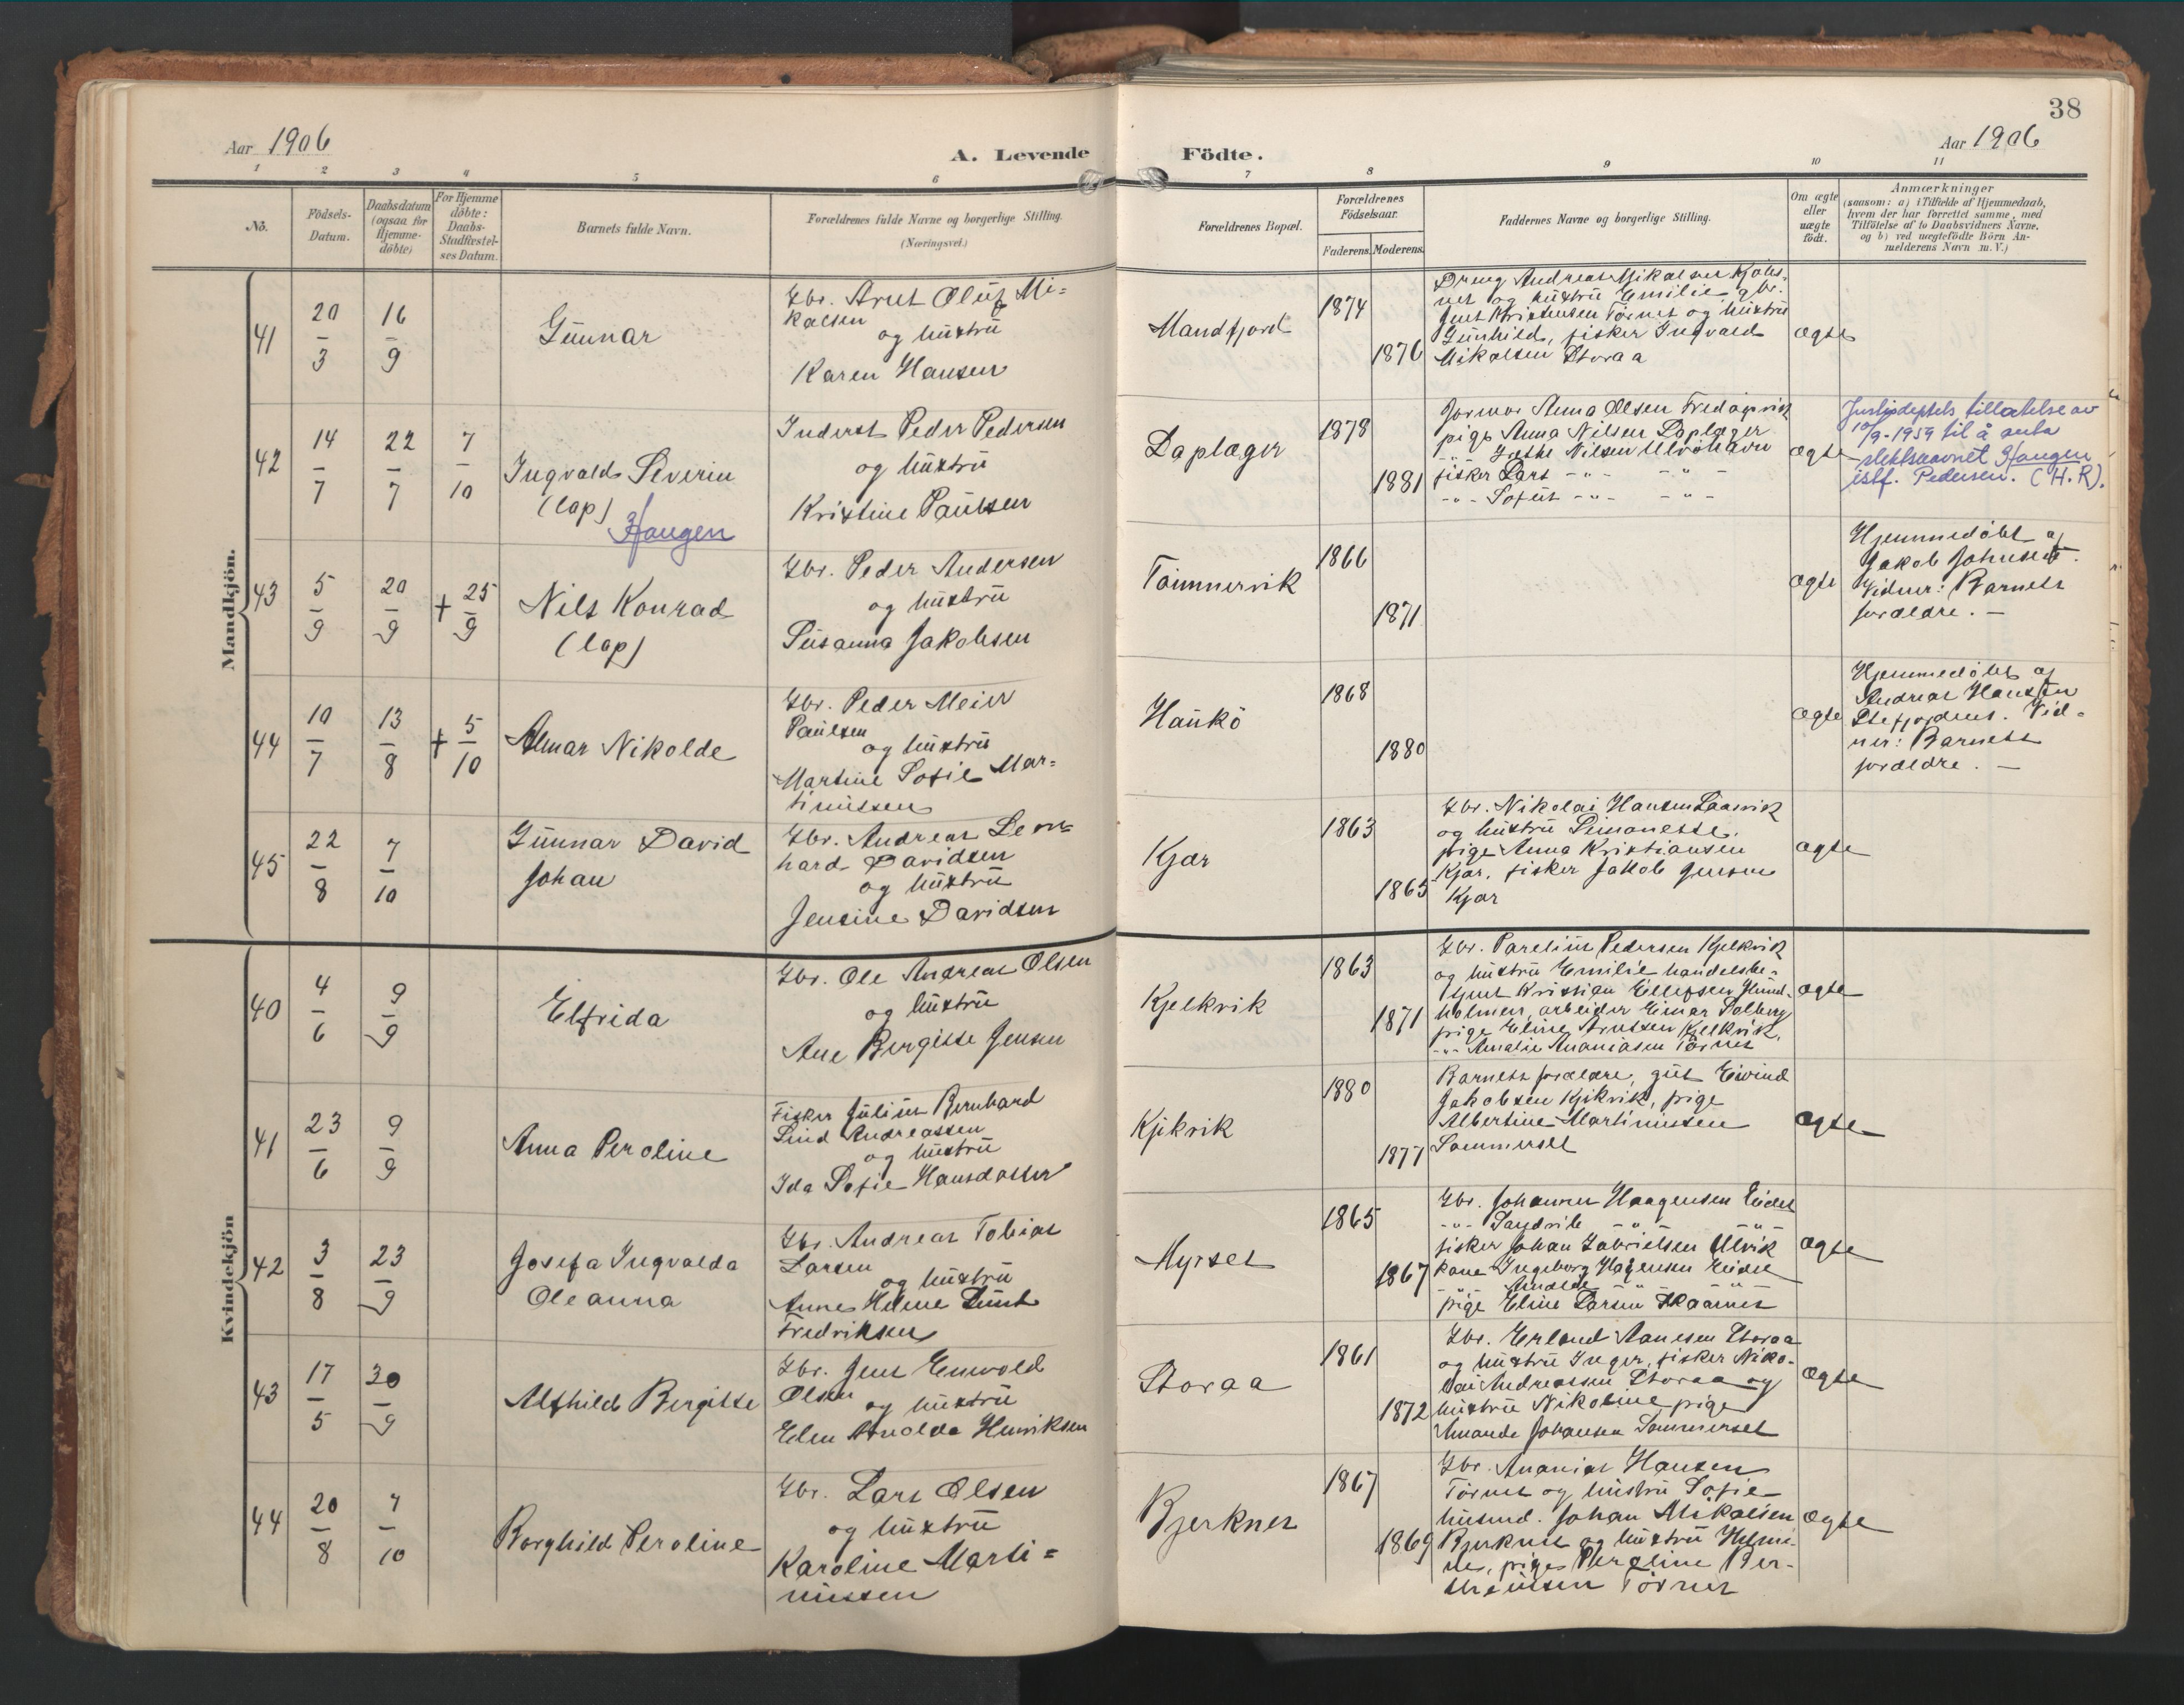 38
Aar 1906
A. Levende Födte.
Aar 1906
1 2 3 4 5 6 7 8 9 10 11
No.
Födsels-Datum.
Daabsdatum (ogsaa for Hjemme-döbte)
For Hjemme döbte: Daabs-Stadfæstel-ses Datum.
Barnets fulde Navn.
Forældrenes fulde Navne og borgerlige Stilling.
(Næringsvei.)
Forældrenes Bopæl.
Forældrenes Födselsaar.
Faderens. Moderens.
Faddernes Navne og borgerlige Stilling.
Om ægte eller uægte födt.
Anmærkninger
(saasom: a) i Tilfælde af Hjemmedaab,
hvem der har forrettet samme, med
Tilföielse af to Daabsvidners Navne,
og b) ved uægtefödte Börn An-
melderens Navn m. V.)
Mandkjön.
41
20/3
16/9
Gunnar
Gbr. Arnt Oluf Mi=
kalsen
og hustru
Karen Hansen
Mandfjord
1874
1876
Dreng Andreas Mikalsen
og hustru Emilie, gbr.
Jens Kristensen Törnes og hustru
Gunhild, fisker Ingvald
Mikalsen Storaa
ægte
42
14/7
22/7
7/10
Ingvald Severin
(lap)
Haugen
Inderst Peder Pedersen
og hustru
Kristine Paulsen
Daplager
1878
1881
Jormor Anna Olsen
pige Anna Nilsen Daplager
-"- Grethe Nilsen Ulvöhavn
fisker Lars -"- -"-
-"- Sofus -"- -"-
ægte
Justisdeptets tillatelse av
10/9-1959 til å anta
slektsnavnet Haugen
istf. Pedersen. (H.R).
43
5/9
20/9
+ 25/9
Nils Konrad
(lap)
Gbr. Peder Andersen
og hustru
Susanna Jakobsen
Tömmervik
1866
1871
ægte
Hjemmedöbt af
Jakob Johnsen.
Vidner: Barnets
forældre. —
44
10/7
13/8
+ 5/10
Almar Nikolde
Gbr. Peder Meier
Paulsen
og hustru
Martine Sofie Mar=
tinussen
Haukö
1868
1880
ægte
Hjemmedöbt af
Andreas Hansen
Stefjorden. Vid-
ner: Barnets
forældre. —
45
22/8
7/10
Gunnar David
Johan
Gbr. Andreas Leon=
hard Davidsen
og hustru
Jensine Davidsen
Kjær
1863
1865
Gbr. Nikolai Hansen
og hustru Simonette,
pige Anna Kristiansen
Kjær, fisker Jakob Jensen
Kjær
ægte
Kvindekjön
40
4/6
9/9
Elfrida
Gbr. Ole Andreas Olsen
og hustru
Ane Bergitte Jensen
Kjelkvik
1863
1871
Gbr. Parelius Pedersen Kjelkvik
og hustru Emilie handelsbe-
tjent Kristian Ellefsen
holmen, arbeider Einar Solberg
pige Eline Arntsen Kjelkvik,
-"- Amalie Ananiasen Törnes
ægte
41
23/6
9/9
Anna Peroline
Fisker Julius Bernhard
Andreassen
og hustru
Ida Sofie Hansdatter
Kjikvik
1880
1877
Barnets forældre, gut Eivind
Jakobsen Kjikvik, pige
Albertine Martinussen
Sommerset
ægte
42
3/8
23/9
Josefa Ingvalda
Oleanna
Gbr. Andreas Tobias
Larsen
og hustru
Anne Helene
Fredriksen
Myrset
1865
1867
Gbr. Johannes Haagensen Eidet
-"- -"- -"-
fisker Johan Gabrielsen Ulvik
kone Ingeborg Hagensen Eidet
-"- -"- -"-
pige Eline Larsen Skaarnes
ægte
43
17/5
30/9
Alfhild Bergitte
Gbr. Jens Enevold
Olsen
og hustru
Elen Arnolda Henriksen
Storaa
1861
1872
Gbr. Erland Aanesen Storaa
og hustru Inger, fisker Niko-
lai Andreassen Storaa og
hustru Nikoline, pige
Amanda Johansen Sommerset
ægte
44
20/8
7/10
Borghild Peroline
Gbr. Lars Olsen
og hustru
Karoline Marti=
nussen
Bjerknes
1867
1869
Gbr. Ananias Hansen
Törnes og hustru Sofie
husmd. Johan Mikalsen
Bjerknes og hustru Helmi-
ne, pige Peroline Ber-
Törnes
ægte